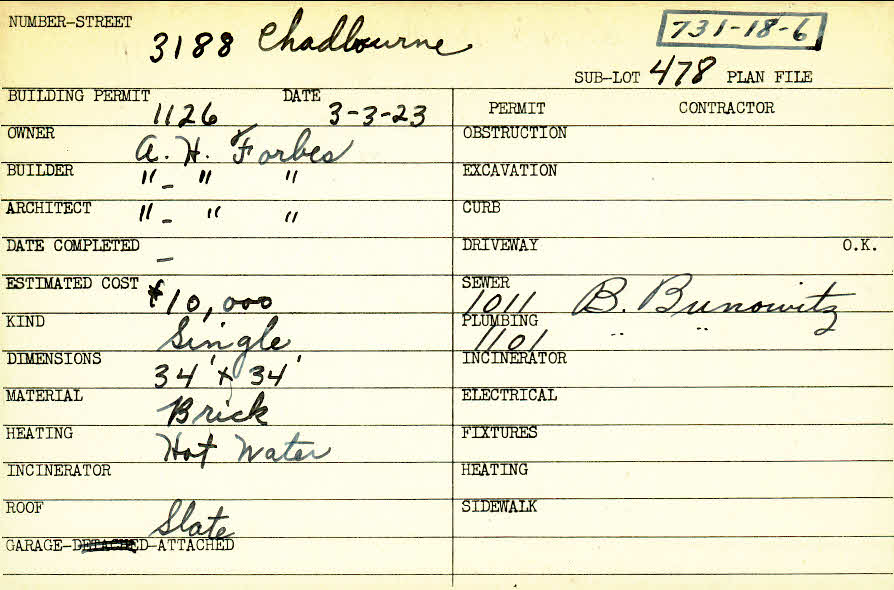 NUMBER-STREET 3188 Chadbourne 731-18-6
SUB-LOT 478 PLAN FILE
BUILDING PERMIT 1126 DATE 3-3-23
OWNER A. H. Forbes
BUILDER "-" "
ARCHITECT "-" "
DATE COMPLETED -
ESTIMATED COST $10,000
KIND Single
DIMENSIONS 34' x 34'
MATERIAL Brick
HEATING Hot Water
INCINERATOR
ROOF Slate
GARAGE-DETACHED-ATTACHED
PERMIT CONTRACTOR
OBSTRUCTION
EXCAVATION
CURB
DRIVEWAY O.K.
SEWER 1011 B. Bunowitz
PLUMBING 1101 " "
INCINERATOR
ELECTRICAL
FIXTURES
HEATING
SIDEWALK